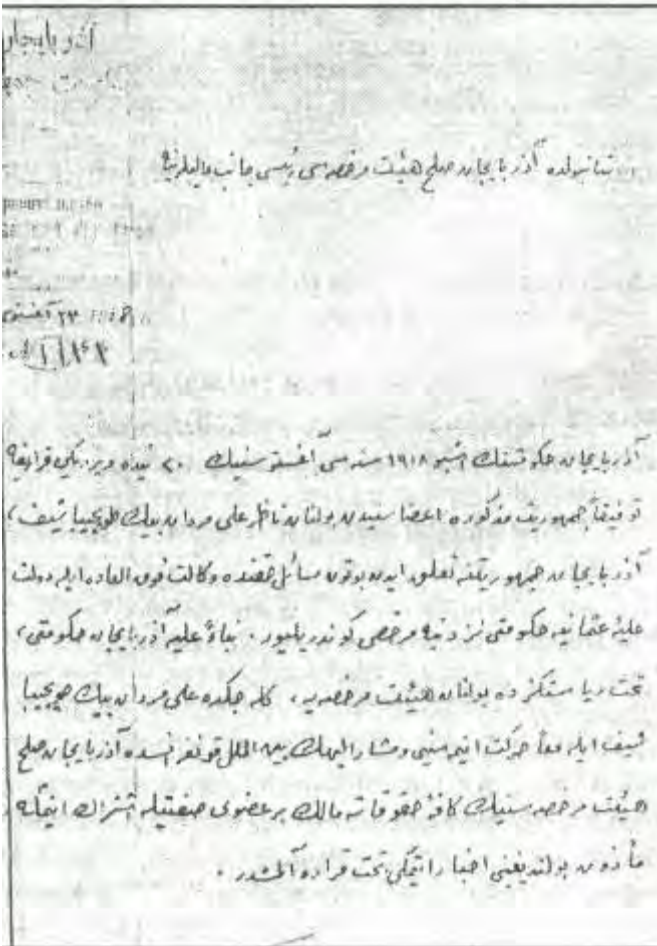 آذربایجان
استانبولده آذربایجان صلح هیئت مرخصه‌سی رئیسی جانب عالیلرینه
٢٣ آغستوس
آذربایجان حکومتنك اشبو ١٩١٨ سنه‌سی آغستوسنیك ٢٠ نیده ویردیكی قرارینه
توفیقاً جمهوریت مذکوره اعضاسیندن بولنان ناظر علی مردان بیك طوپچیباشیف،
آذربایجان جمهوریتنه تعلق ایدن بوتون مسائل حقنده وکالت فوق العاده ایله دولت
علیهٔ عثمانیه حکومتی نزدینه مرخص کوندریلیور. بناءً علیه آذربایجان حکومتی،
تحت ریاستکزده بولنان هیئت مرخصه‌یه، کله‌جکده علی مردان بیك طوپچیبا
شیف ایله معاً حرکت ایتمسنی ومشار الیهك بین الملل قونفرانسده آذربایجان صلح
هیئت مرخصه‌سنیك کافهٔ حقوقاته مالك بر عضوی صفتیله اشتراك ایتمکه
مأذون بولندیغنی اخبار ایتمکی تحت قراره آلمشدر.